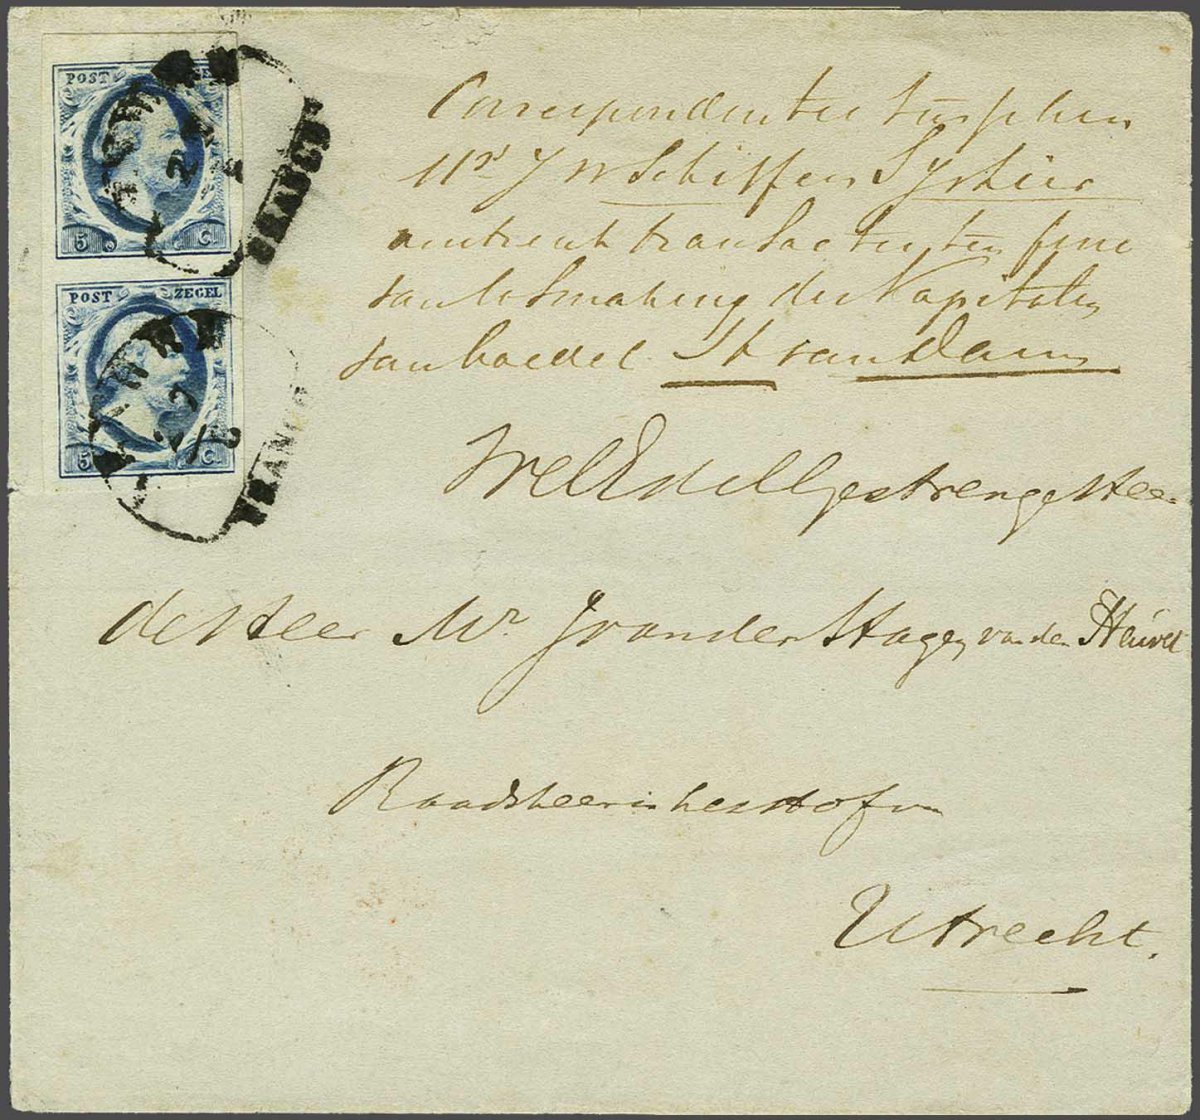 POST
5 C.
FRANCO
POST ZEGEL
5 C.
FRANCO
Correspondentie tusschen
J W Schiffer Sijstier
omtrent transactie ten fine
van losmaking der Kapitalen
van boedel St van Dam
WelEdelGestrenge Heer
de Heer Mr. J van der Hagen van den Heuvel
Raadsheer in het Hof van
Utrecht.